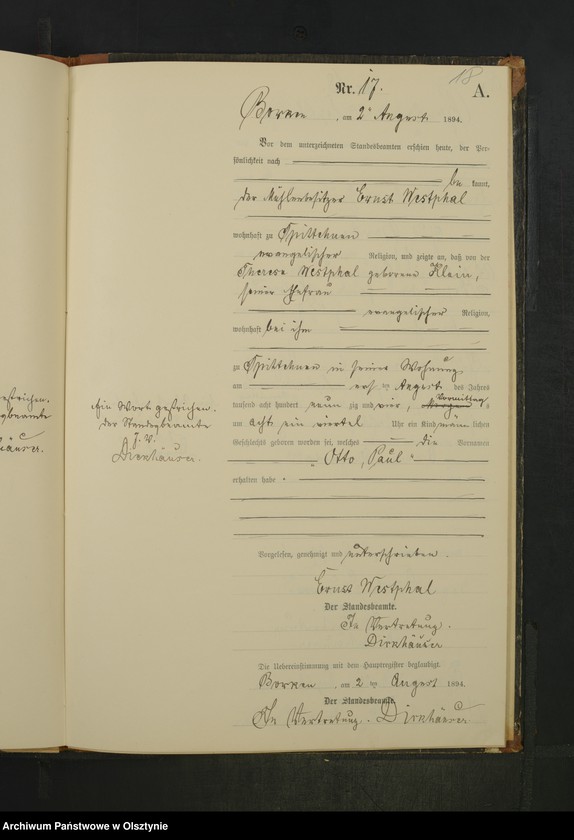 18
Nr. 17.
A.
Borken, am 2ten August 1894.
Vor dem unterzeichneten Standesbeamten erschien heute, der Per-
sönlichkeit nach
be kannt,
der Mühlenbesitzer Ernst Westphal
wohnhaft zu Spittehnen
evangelischer Religion, und zeigte an, daß von der
Therese Westphal geborene Klein,
seiner Ehefrau
evangelischer Religion,
wohnhaft bei ihm
zu Spittehnen in seiner Wohnung
am ersten August des Jahres
tausend acht hundert neun zig und vier, Vormittag s
um acht ein viertel Uhr ein Kind männ lichen
Geschlechts geboren worden sei, welches die Vornamen
"Otto, Paul"
erhalten habe
Vorgelesen, genehmigt und unterschrieben.
Ernst Westphal
Der Standesbeamte.
In Vertretung.
Dirnhäuser
Die Uebereinstimmung mit dem Hauptregister beglaubigt.
Borken, am 2ten August 1894.
Der Standesbeamte.
In Vertretung. Dirnhäuser
Ein Wort gestrichen.
Der Standesbeamte
J. V.
Dirnhäuser.
estrichen.
sbeamte
häuser.
Archiwum Państwowe w Olsztynie